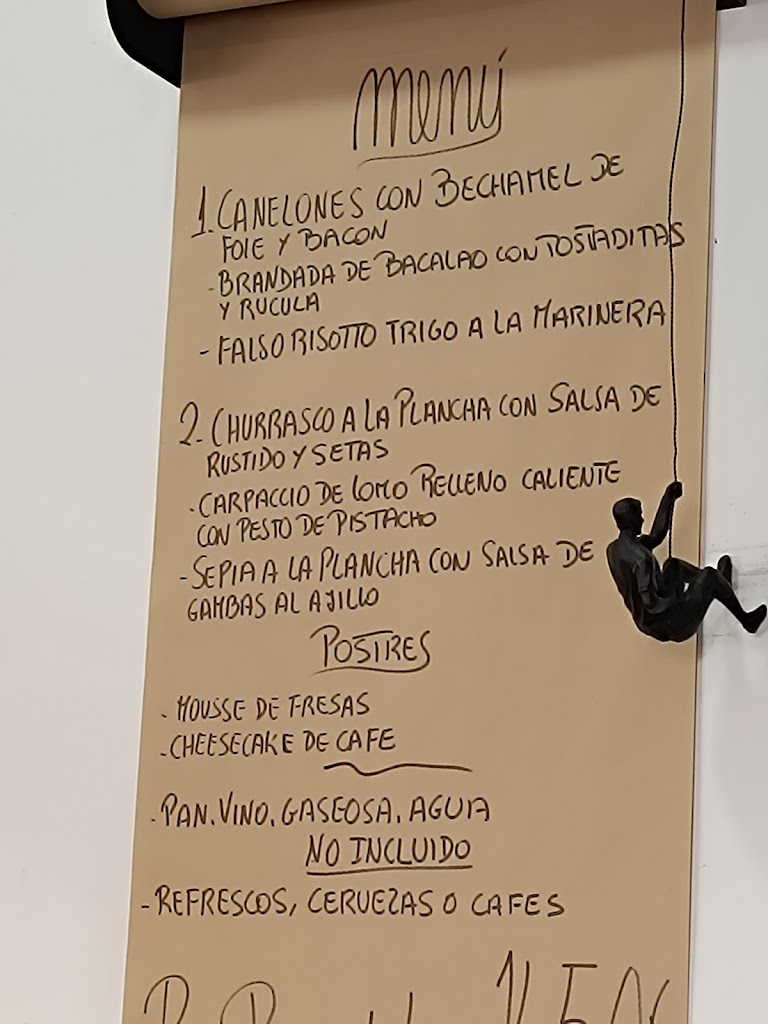 Menú
1. CANELONES CON BECHAMEL DE
FOIE Y BACON
- BRANDADA DE BACALAO CON TOSTADITAS
Y RUCULA
- FALSO RISOTTO TRIGO A LA MARINERA
2. CHURRASCO A LA PLANCHA CON SALSA DE
RUSTIDO Y SETAS
- CARPACCIO DE LOMO RELLENO CALIENTE
CON PESTO DE PISTACHO
- SEPIA A LA PLANCHA CON SALSA DE
GAMBAS AL AJILLO
POSTRES
- MOUSSE DE FRESAS
- CHEESECAKE DE CAFE
- PAN, VINO, GASEOSA, AGUA
NO INCLUIDO
- REFRESCOS, CERVEZAS O CAFES